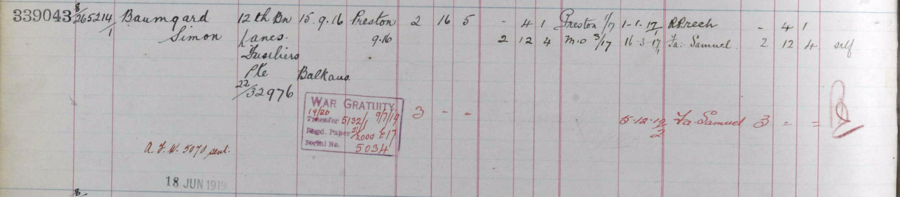 339043 8/265214/1 Baumgard 12th Bn 15.9.16 Preston 2 16 5 - 4 1 Preston 5/17 1-1-17 - 4 1
Simon Lancs. 9.16 2 12 4 M.O 3/17 16 3 17 Fa. Samuel 2 12 4 self
Fusiliers
Pte Balkans
22/32976
WAR GRATUITY 3 - - 5.12.19 Fa. Samuel 3 - =
19/20
Transfer 5/32/1
Regd. Paper
Serial No. 5034
A.F.W. 5070 sent.
18 JUN 1919